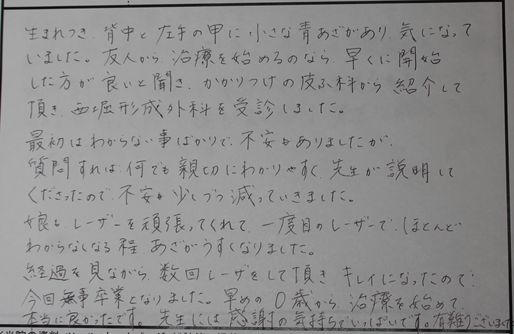 生まれつき、背中と左手の甲に小さな青あざがあり、気になって
いました。友人から、治療を始めるのなら、早くに開始
した方が良いと聞き、かかりつけの皮ふ科から紹介して
頂き、西堀形成外科を受診しました。
最初はわからない事ばかりで、不安もありましたが、
質問すれば、何でも親切にわかりやすく、先生が説明して
くださったので、不安も少しづつ減っていきました。
娘もレーザーを頑張ってくれて、一度目のレーザーで、ほとんど
わからなくなる程、あざがうすくなりました。
経過を見ながら、数回レーザをして頂き、キレイになったので、
今回無事卒業となりました。早めの0歳から、治療を始めて、
本当に良かったです。先生には感謝の気持ちでいっぱいです。有難うございま